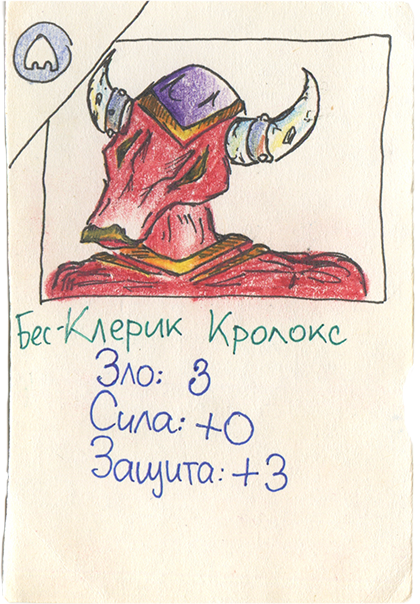 Бес-Клерик Кролокс
Зло: 3
Сила: +0
Защита: +3